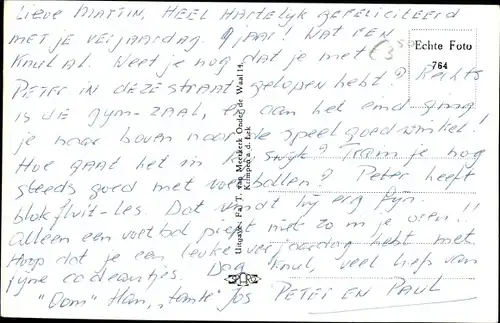 Lieve MARTIN, HEEL HARTELYK GEFELICITEERD
MET JE VERJAARDAG. 9 JAAR! WAT EEN
KNUL AL. Weet je nog dat je met
PETER IN DEZE STRAAT gelopen hebt? Rechts
is die gym-ZAAL, en aan het eind ging
je naar boven naar de speelgoedwinkel!
Hoe gaat het in Ryswyk? Train je nog
steeds goed met voetballen? Peter heeft
blokfluit-les. Dat vindt hy erg fyn.
Alleen een voetbal piept niet zo in je oren!!
Hoop dat je een leuke verjaardag hebt met
fyne cadeautjes. Dag Knul, veel liefs van
"Oom" Han, "tante" Jos PETER EN PAUL
Echte Foto
764
Uitgave: Fa. T. van Meerkerk Onder de Waal 14,
Krimpen a. d. Lek